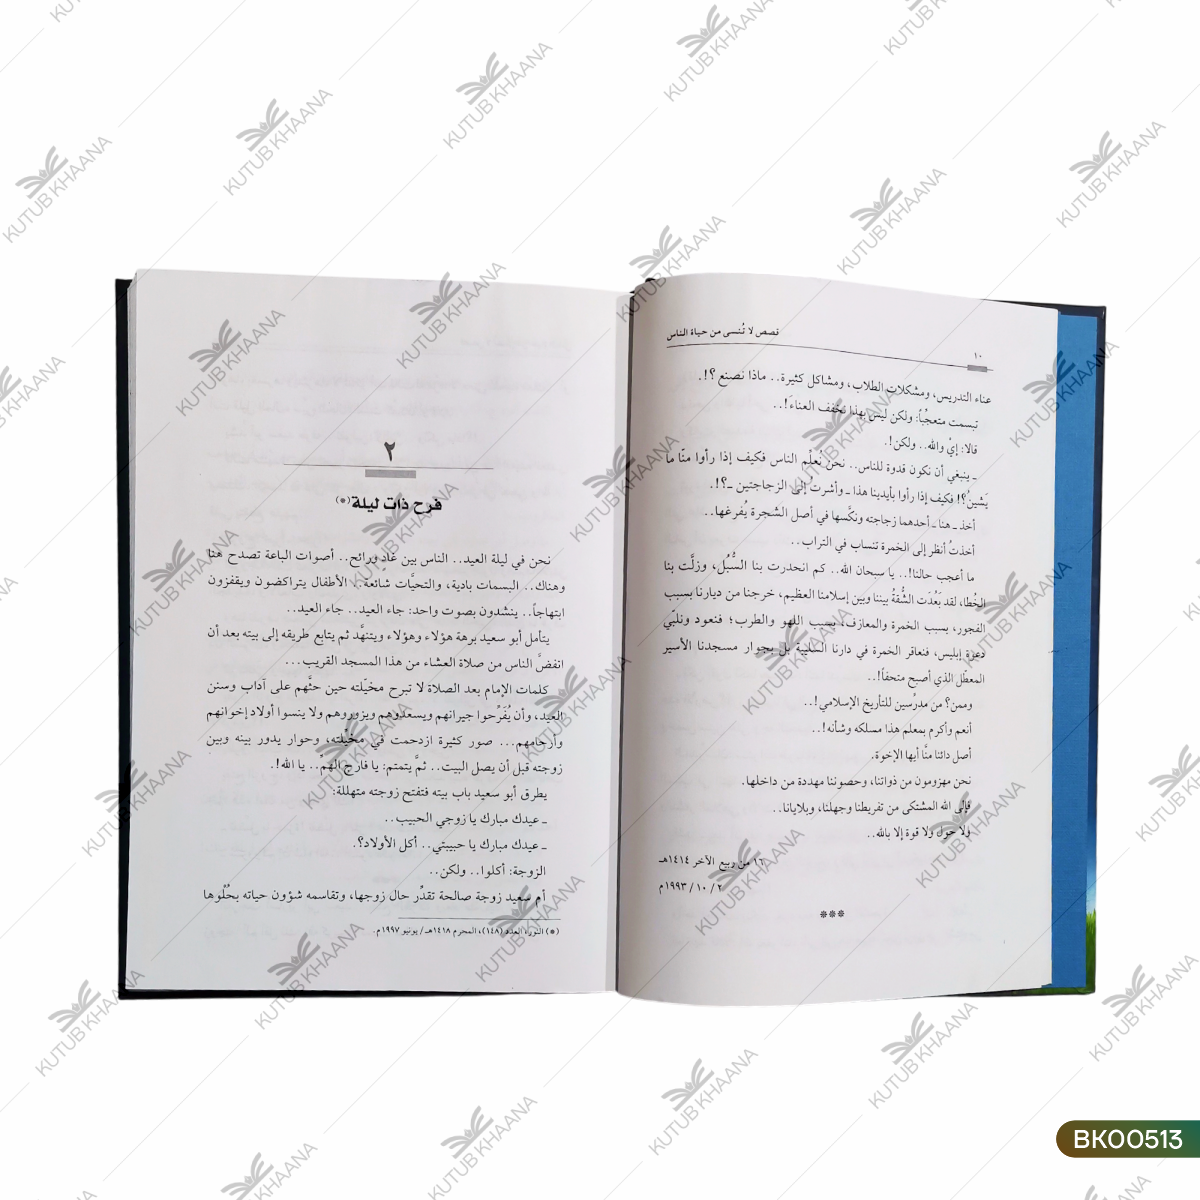 قصص لا تُنسى من حياة الناس
١٠
عناء التدريس، ومشكلات الطلاب، ومشاكل كثيرة.. ماذا نصنع؟!.
تبسمت متعجُباً: ولكن ليس بهذا تخفف العناء!..
قالا: إيْ والله.. ولكن!.
ـ ينبغي أن نكون قدوة للناس.. نحن نُعلِّم الناس فكيف إذا رأوا منّا ما
يَشينُ؟! فكيف إذا رأوا بأيدينا هذا ـ وأشرت إلى الزجاجتين ـ؟!.
أخذ ـ هنا ـ أحدهما زجاجته ونكَّسها في أصل الشجرة يُفرغها..
أخذتُ أنظر إلى الخمرة تنساب في التراب..
ما أعجب حالنا!.. يا سبحان الله.. كم انحدرت بنا السُّبُل، وزلَّت بنا
الخُطا، لقد بَعُدَت الشُّقةُ بيننا وبين إسلامنا العظيم، خرجنا من ديارنا بسبب
الفجور، بسبب الخمرة والمعازف، بسبب اللهو والطرب؛ فنعود ونلبّي
دعوة إبليس، فنعاقر الخمرة في دارنا السليبة بل بجوار مسجدنا الأسير
المعطّل الذي أصبح متحفاً!..
وممن؟ من مدرّسين للتأريخ الإسلامي!..
أنعم وأكرم بمعلم هذا مسلكه وشأنه!..
أصل دائنا منَّا أيها الإخوة.
نحن مهزومون من ذواتنا، وحصوننا مهددة من داخلها.
فإلى الله المشتكى من تفريطنا وجهلنا، وبلايانا..
ولا حول ولا قوة إلا بالله..
١٦ من ربيع الآخر ١٤١٤هـ
٢ / ١٠ / ١٩٩٣م
***
٢
فرح ذات ليلة(*)
نحن في ليلة العيد.. الناس بين غادٍ ورائح.. أصوات الباعة تصدح هنا
وهناك.. البسمات بادية، والتحيَّات شائعة.. الأطفال يتراكضون ويقفزون
ابتهاجاً.. ينشدون بصوت واحد: جاء العيد.. جاء العيد..
يتأمل أبو سعيد برهة هؤلاء وهؤلاء ويتنهَّد ثم يتابع طريقه إلى بيته بعد أن
انفضَّ الناس من صلاة العشاء من هذا المسجد القريب...
كلمات الإمام بعد الصلاة لا تبرح مخيّلته حين حثَّهم على آداب وسنن
العيد، وأن يُفَرِّحوا جيرانهم ويسعدوهم ويزوروهم ولا ينسوا أولاد إخوانهم
وأرحامهم... صور كثيرة ازدحمت في مخيّلته، وحوار يدور بينه وبين
زوجته قبل أن يصل البيت.. ثمَّ يتمتم: يا فارج الهمّ.. يا الله!.
يطرق أبو سعيد باب بيته فتفتح زوجته متهللة:
ـ عيدك مبارك يا زوجي الحبيب..
ـ عيدك مبارك يا حبيبتي.. أكل الأولاد؟.
الزوجة: أكلوا.. ولكن..
أم سعيد زوجة صالحة تقدِّر حال زوجها، وتقاسمه شؤون حياته بحُلْوها
(*) النور، العدد (١٤٨)، المحرم ١٤١٨هـ/ يونيو ١٩٩٧م.
KUTUB KHAANA
BK00513